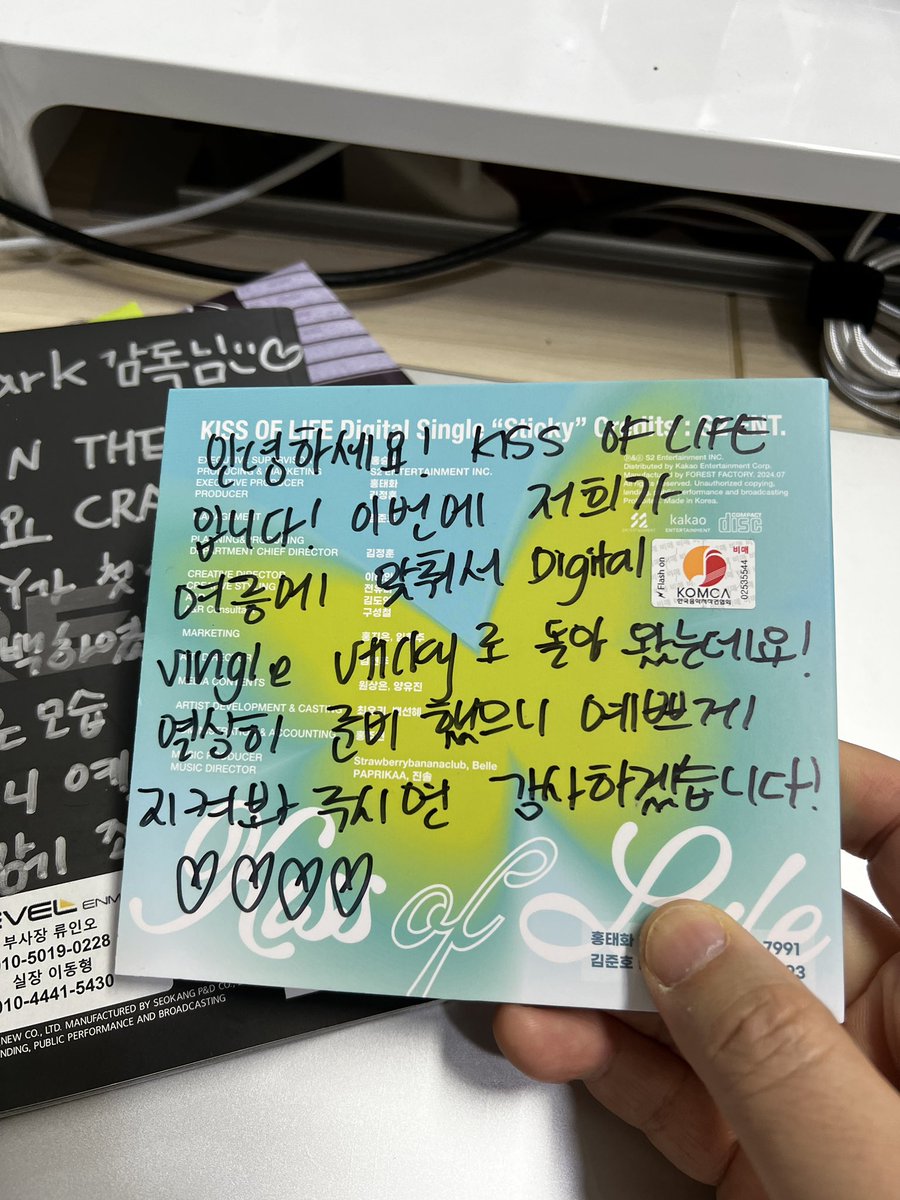 ark 감독님
N THE
요 CRA
Y가 첫
백하였
은 모습
니 예
함께
EVEL ENM
부사장 류인오
010-5019-0228
실장 이동형
010-4441-5430
NEW CO., LTD. MANUFACTURED BY SEOKANG P&D CO.,
NDING, PUBLIC PERFORMANCE AND BROADCASTING
KISS OF LIFE Digital Single "Sticky" Credits : S2 ENT.
안녕하세요! KISS OF LIFE
입니다! 이번에 저희가
여름에 맞춰서 Digital
single sticky로 돌아 왔는데요!
열심히 준비 했으니 예쁘게
지켜봐 주시면 감사하겠습니다!
♡♡♡♡
PRODUCING & MARKETING S2 ENTERTAINMENT INC.
EXECUTIVE PRODUCER 홍태화
PRODUCER 김정훈
DEPARTMENT CHIEF DIRECTOR 김정훈
CREATIVE DIRECTOR
MARKETING
원상은, 양유진
ARTIST DEVELOPMENT & CASTING
Strawberrybananaclub, Belle
MUSIC DIRECTOR PAPRIKAA, 진솔
℗&© S2 Entertainment INC.
Distributed by Kakao Entertainment Corp.
Manufactured by FOREST FACTORY. 2024.07
All rights reserved. Unauthorized copying,
performance and broadcasting
Made in Korea.
S2 ENTERTAINMENT
kakao ENTERTAINMENT
COMPACT disc
Flash on
비매
KOMCA
한국음악저작권협회
02535544
Kiss of Life
홍태화 7991
김준호 93